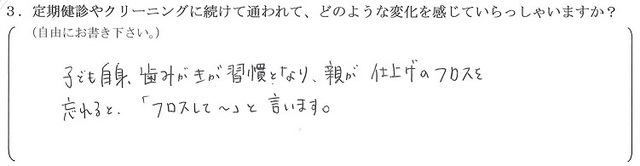 3．定期健診やクリーニングに続けて通われて、どのような変化を感じていらっしゃいますか？
（自由にお書き下さい。）
子ども自身、歯みがきが習慣となり、親が仕上げのフロスを
忘れると、「フロスして～」と言います。